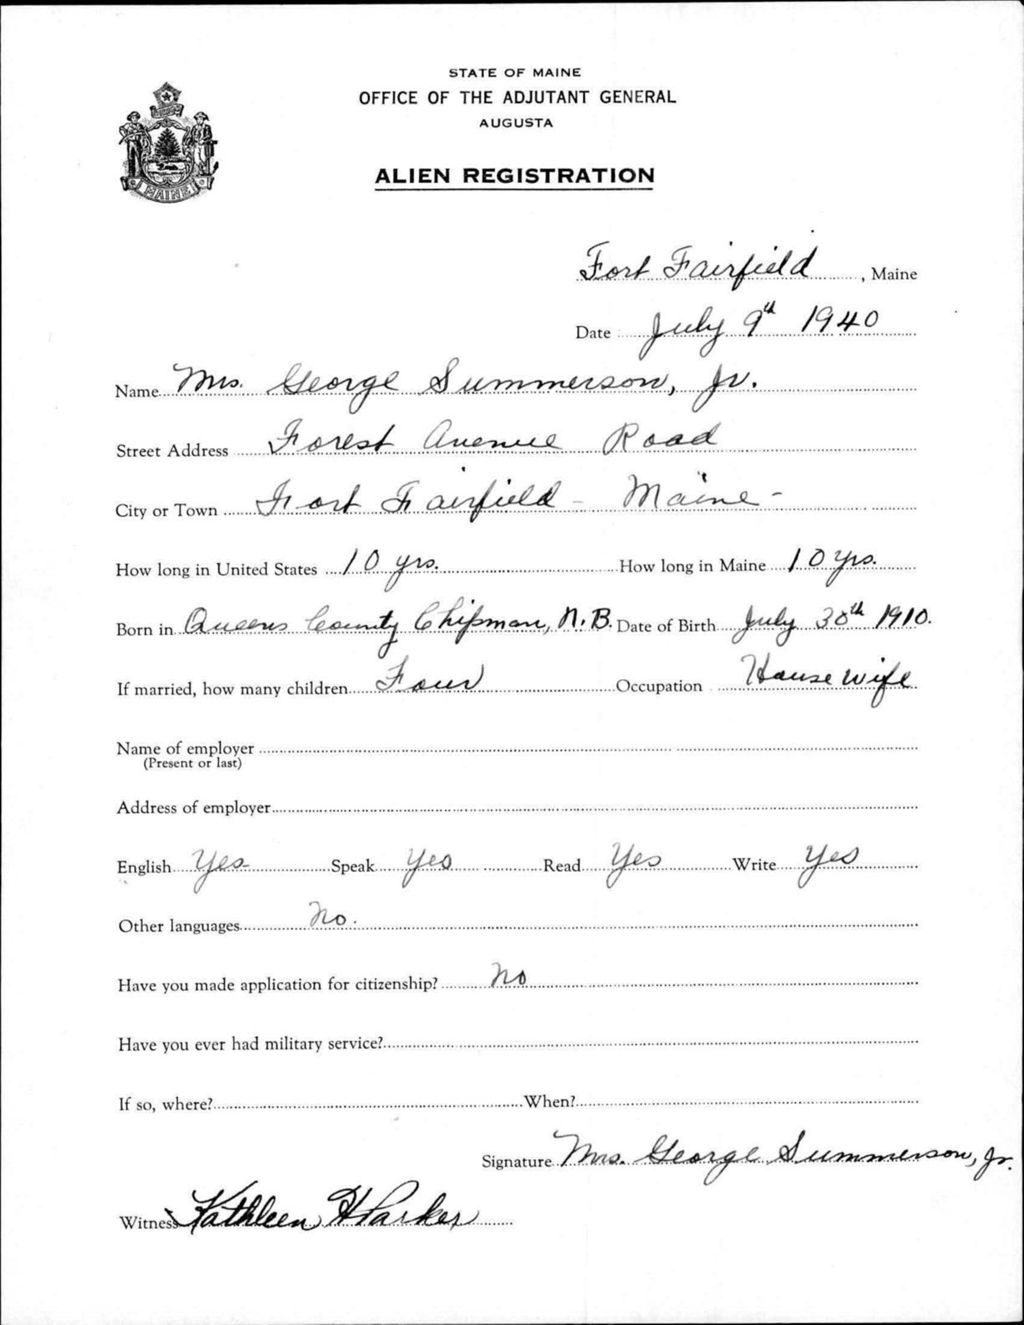 STATE OF MAINE
OFFICE OF THE ADJUTANT GENERAL
AUGUSTA
ALIEN REGISTRATION
MAINE
Fort Fairfield, Maine
Date July 9th 1940
Name Mrs. George Summerson, Jr.
Street Address Forest Avenue Road
City or Town Fort Fairfield - Maine -
How long in United States 10 yrs. How long in Maine 10 yrs.
Born in Queens County Chipman, N.B. Date of Birth July 30th 1910.
If married, how many children Four Occupation Housewife
Name of employer
(Present or last)
Address of employer
English Yes Speak Yes Read Yes Write Yes
Other languages No.
Have you made application for citizenship? No
Have you ever had military service?
If so, where? When?
Signature Mrs. George Summerson, Jr.
Witness Kathleen H Parker